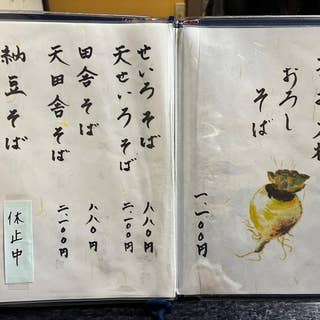 おろし
そば
一、一〇〇円
せいろそば
八八〇円
天せいろそば
二、一〇〇円
田舎そば
八八〇円
天田舎そば
二、一〇〇円
納豆そば
休止中